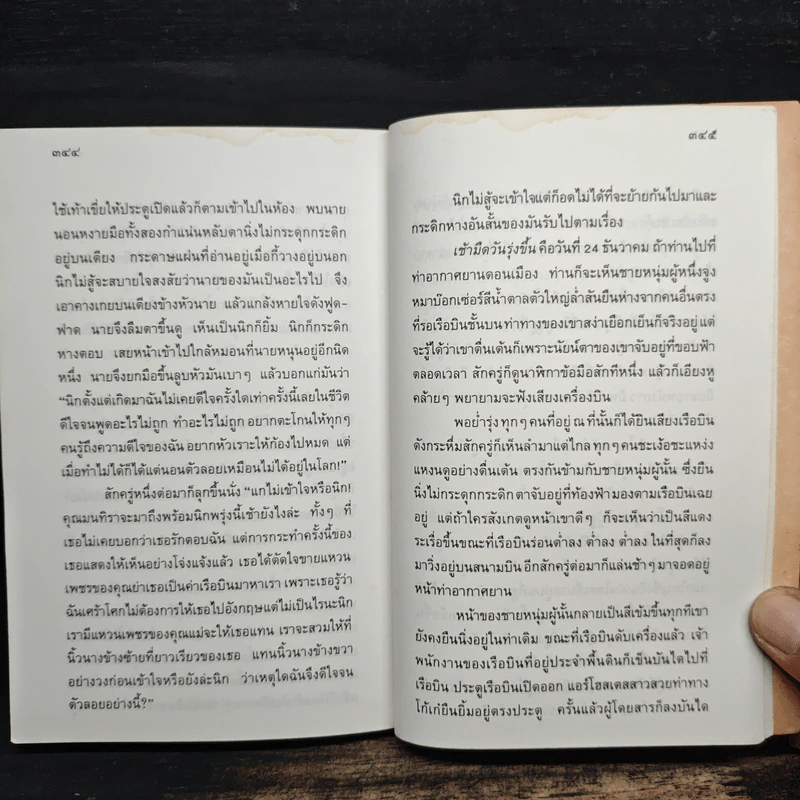 ๓๔๔
ใช้เท้าเขี่ยให้ประตูเปิดแล้วก็ตามเข้าไปในห้อง พบนาย
นอนหงายมือทั้งสองกำแน่นหลับตานิ่งไม่กระดุกกระดิก
อยู่บนเตียง กระดาษแผ่นที่อ่านอยู่เมื่อกี้วางอยู่บนอก
นิกไม่สู้จะสบายใจสงสัยว่านายของมันเป็นอะไรไป จึง
เอาคางเกยบนเตียงข้างหัวนาย แล้วแกล้งหายใจดังฟูด-
ฟาด นายจึงลืมตาขึ้นดู เห็นเป็นนิกก็ยิ้ม นิกก็กระดิก
หางตอบ เสยหน้าเข้าไปใกล้หมอนที่นายหนุนอยู่อีกนิด
หนึ่ง นายจึงยกมือขึ้นลูบหัวมันเบาๆ แล้วบอกแก่มันว่า
“นิกตั้งแต่เกิดมาฉันไม่เคยดีใจครั้งใดเท่าครั้งนี้เลยในชีวิต
ดีใจจนพูดอะไรไม่ถูก ทำอะไรไม่ถูก อยากตะโกนให้ทุกๆ
คนรู้ถึงความดีใจของฉัน อยากหัวเราะให้ก้องไปหมด แต่
เมื่อทำไม่ได้ก็ได้แต่นอนตัวลอยเหมือนไม่ได้อยู่ในโลก!”
สักครู่หนึ่งต่อมาก็ลุกขึ้นนั่ง “แกไม่เข้าใจหรือนิก!
คุณมนทิราจะมาถึงพร้อมนิกพรุ่งนี้เช้ายังไงล่ะ ทั้งๆ ที่
เธอไม่เคยบอกว่าเธอรักตอบฉัน แต่การกระทำครั้งนี้ของ
เธอแสดงให้เห็นอย่างโจ่งแจ้งแล้ว เธอได้ตัดใจขายแหวน
เพชรของคุณย่าเธอเป็นค่าเรือบินมาหาเรา เพราะเธอรู้ว่า
ฉันเศร้าโศกไม่ต้องการให้เธอไปอังกฤษแต่ไม่เป็นไรนะนิก
เรามีแหวนเพชรของคุณแม่จะให้เธอแทน เราจะสวมให้ที่
นิ้วนางข้างซ้ายที่ยาวเรียวของเธอ แทนนิ้วนางข้างขวา
อย่างวงก่อนเข้าใจหรือยังล่ะนิก ว่าเหตุใดฉันจึงดีใจจน
ตัวลอยอย่างนี้?”
๓๔๕
นิกไม่สู้จะเข้าใจแต่ก็อดไม่ได้ที่จะย้ายก้นไปมาและ
กระดิกหางอันสั้นของมันรับไปตามเรื่อง
เช้ามืดวันรุ่งขึ้น คือวันที่ 24 ธันวาคม ถ้าท่านไปที่
ท่าอากาศยานดอนเมือง ท่านก็จะเห็นชายหนุ่มผู้หนึ่งจูง
หมาบ๊อกเซ่อร์สีน้ำตาลตัวใหญ่ล่ำสันยืนห่างจากคนอื่นตรง
ที่รอเรือบินชั้นบน ท่าทางของเขาสง่าเยือกเย็นก็จริงอยู่ แต่
จะรู้ได้ว่าเขาตื่นเต้นก็เพราะนัยน์ตาของเขาจับอยู่ที่ขอบฟ้า
ตลอดเวลา สักครู่ก็ดูนาฬิกาข้อมือสักทีหนึ่ง แล้วก็เอียงหู
คล้ายๆ พยายามจะฟังเสียงเครื่องบิน
พอย่ำรุ่ง ทุกๆ คนที่อยู่ ณ ที่นั้นก็ได้ยินเสียงเรือบิน
ดังกระหึ่มสักครู่ก็เห็นลำมาแต่ไกล ทุกๆ คนชะเง้อชะแหง่ง
แหงนดูอย่างตื่นเต้น ตรงกันข้ามกับชายหนุ่มผู้นั้น ซึ่งยืน
นิ่งไม่กระดุกกระดิก ตาจับอยู่ที่ท้องฟ้า มองตามเรือบินเฉย
อยู่ แต่ถ้าใครสังเกตดูหน้าเขาดีๆ ก็จะเห็นว่าเป็นสีแดง
ระเรื่อขึ้นขณะที่เรือบินร่อนต่ำลง ต่ำลง ต่ำลง ในที่สุดก็ลง
มาวิ่งอยู่บนสนามบิน อีกสักครู่ต่อมาก็แล่นช้าๆ มาจอดอยู่
หน้าท่าอากาศยาน
หน้าของชายหนุ่มผู้นั้นกลายเป็นสีเข้มขึ้นทุกทีเขา
ยังคงยืนนิ่งอยู่ในท่าเดิม ขณะที่เรือบินดับเครื่องแล้ว เจ้า
พนักงานของเรือบินที่อยู่ประจำพื้นดินก็เข็นบันไดไปที่
เรือบิน ประตูเรือบินเปิดออก แอร์โฮสเตสสาวสวยท่าทาง
โก้เก๋ยืนยิ้มอยู่ตรงประตู ครั้นแล้วผู้โดยสารก็ลงบันได